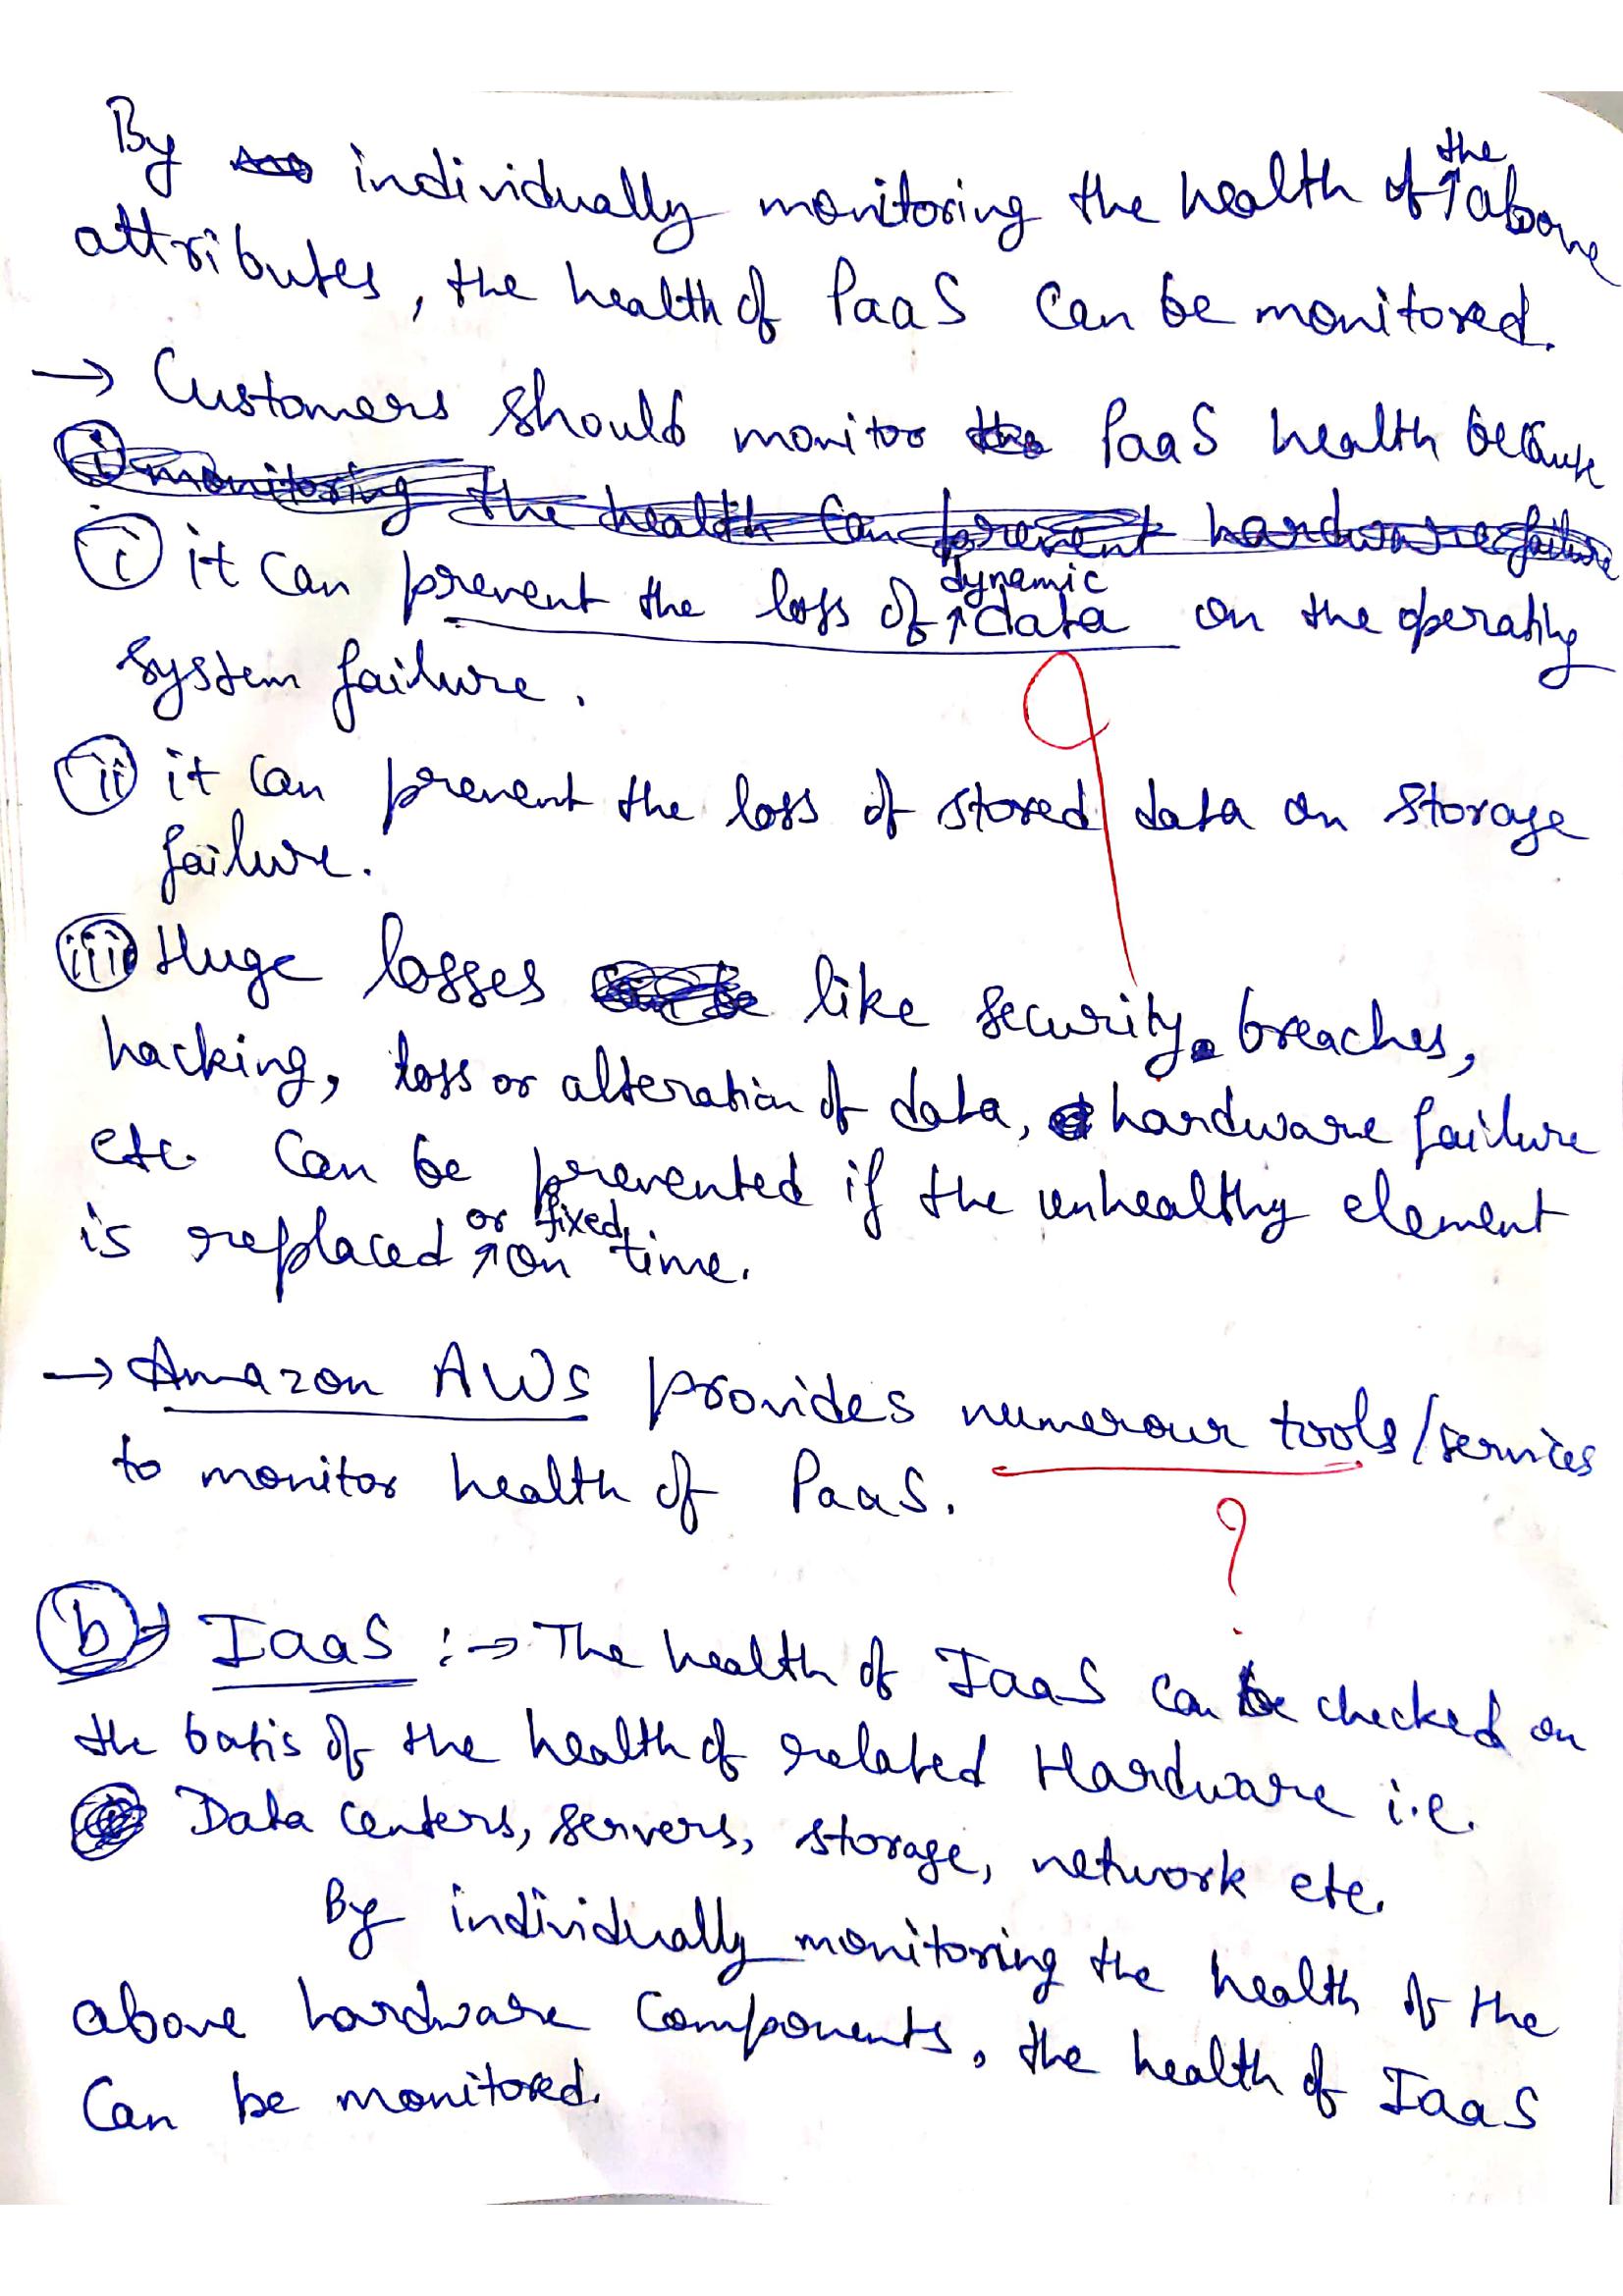 By individually monitoring the health of the above
attributes, the health of PaaS Can be monitored.
→ Customers should monitor PaaS health because
i monitoring the health Can prevent hardware failure
i it Can prevent the loss of dynamic data on the operating
system failure.
ii it Can prevent the loss of stored data on storage
failure.
iii Huge losses like security breaches,
hacking, loss or alteration of data, hardware failure
etc. Can be prevented if the unhealthy element
is replaced or fixed on time.
→ Amazon AWS provides numerous tools/services
to monitor health of PaaS.
?
b → IaaS :→ The health of IaaS Can be checked on
the basis of the health of related Hardware i.e.
Data Centers, servers, storage, network etc.
By individually monitoring the health of the
above hardware Components, the health of IaaS
Can be monitored.